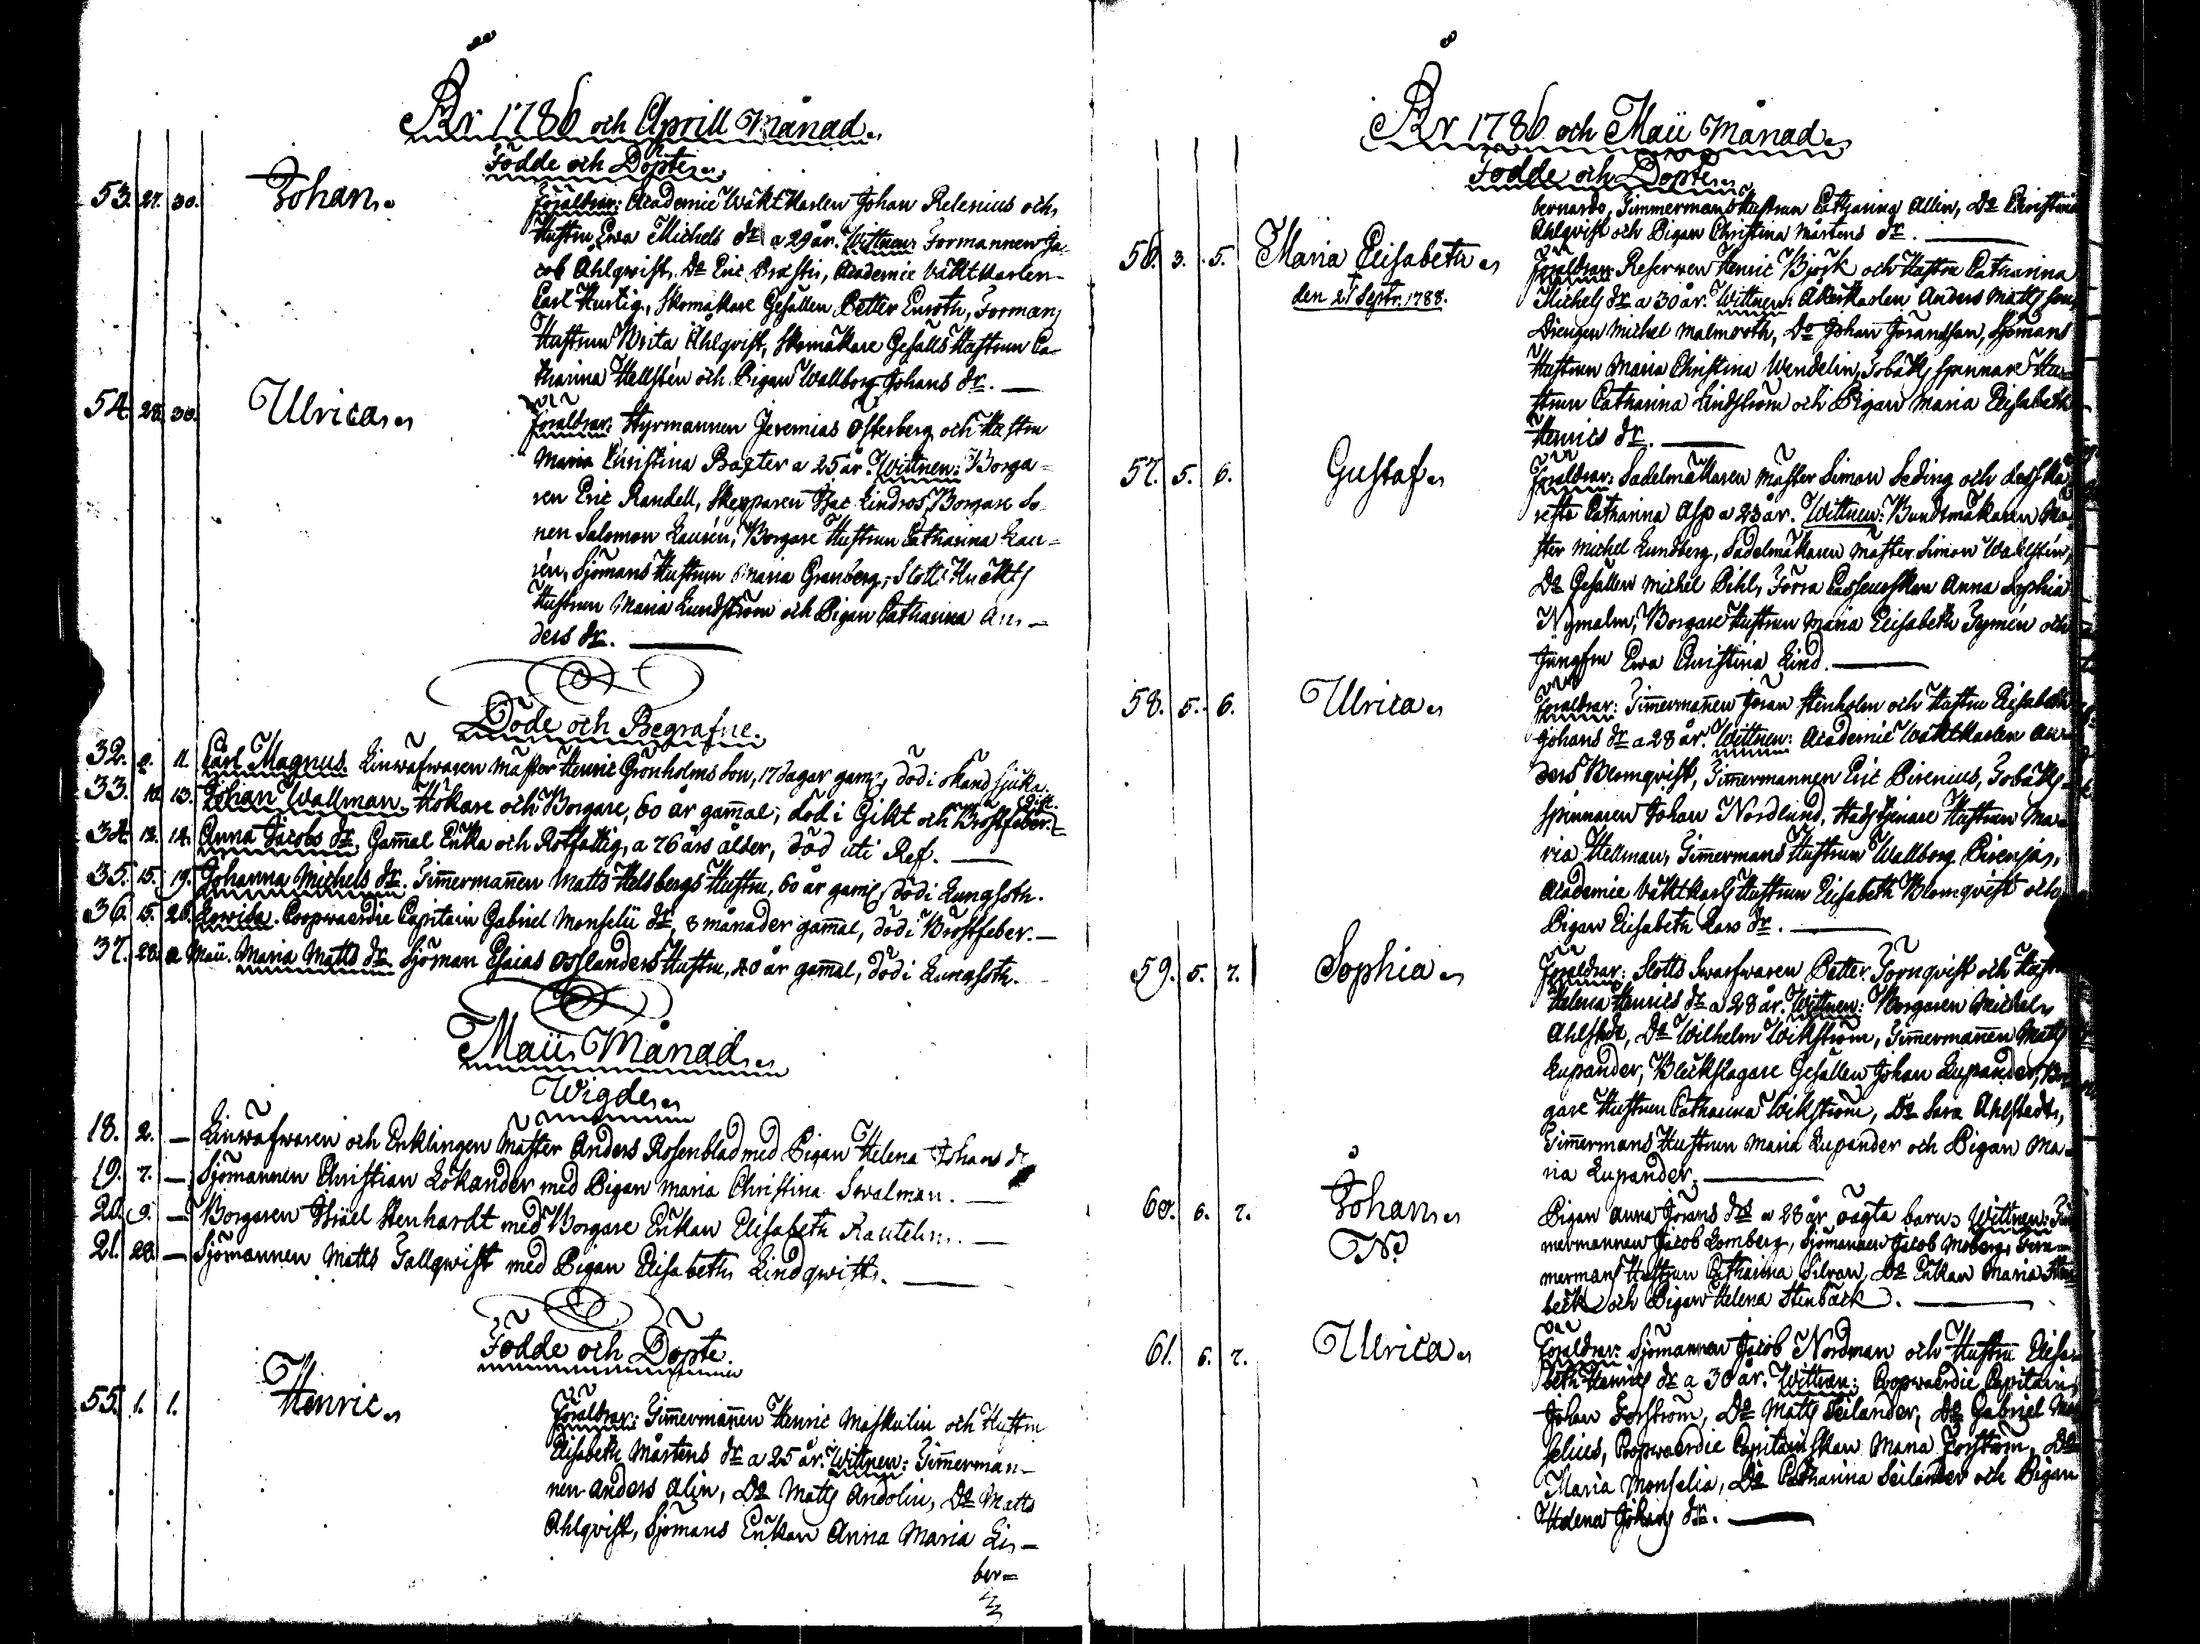 År 1786 och Aprill Månad.
Födde och Döpte.
53. 27. 30. Johan. Föräldrar: Academie Wäkt Karlen Johan Relenius och
Hustru Ewa Michels dr a 29 år. Wittnen: Formannen Ja-
cob Ahlqwist, Do Eric Prostii, Academie Väktkarlen
Carl Hurtig, Skomakare Gesällen Petter Enroth, Formans
Hustrun Brita Ahlqvist, Skomakare Gesälls Hustrun Ca-
tharina Hellstén och Pigan Wallborg Johans dr.
54. 28. 30. Ulrica. Föräldrar: Styrmannen Jeremias Österberg och Hustru
Maria Christina Baxter a 25 år. Wittnen: Borga-
ren Eric Randell, Skepparen Isac Lindros, Borgare So-
nen Salomon Laurén, Borgare Hustrun Catharina Lau-
rén, Sjömans Hustrun Maria Granberg, Slotts Knekts
Hustrun Maria Lundström och Pigan Catharina An-
ders dr.
Döde och Begrafne.
32. 9. 11. Carl Magnus. Linwäfwaren Mäster Henric Grönholms Son, 17 dagar gaml, död i okänd sjuka.
33. 10. 13. Johan Wallman. Hökare och Borgare, 60 år gammal, död i Gikt och Bröstfeber.
34. 12. 14. Anna Jacobs dr. Gammal Enka och Rotfattig, a 76 års ålder, död uti Ref.
35. 15. 19. Johanna Michels dr. Timmermannen Matts Helsbergs Hustru, 60 år gaml, död i Lungsoth.
36. 15. 20. Lowisa. Coopwaerdie Capitain Gabriel Monselii dr, 8 månader gammal, död i Bröstfeber.
37. 28. 2 Maii. Maria Matts dr. Sjöman Esaias Osslanders Hustru, 40 år gammal, död i Lungsoth.
Maii Månad.
Wigde.
18. 2. — Linwäfwaren och Enklingen Mäster Anders Rosenblad med Pigan Helena Johans dr
19. 7. — Sjömannen Christian Lökander med Pigan Maria Christina Swalman.
20. 9. — Borgaren Israel Stenhardt med Borgare Enkan Elisabeth Rautelin.
21. 28. — Sjömannen Matts Tallqwist med Pigan Elisabeth Lindqwist.
Födde och Döpte.
55. 1. 1. Henric. Föräldrar: Timmermannen Henric Maskulin och Hustru
Elisabeth Mårtens dr a 25 år. Wittnen: Timmerman-
nen Anders Alin, Do Matts Andolin, Do Matts
Ahlqvist, Sjömans Enkan Anna Maria Lis-
ber-
År 1786 och Maii Månad.
Födde och Döpte.
bernardo, Timmermans Hustrun Catharina Allin, Do Christina
Ahlqvist och Pigan Christina Mårtens dr.
56. 3. 5. Maria Elisabeth. Föräldrar: Reserven Henric Björk och Hustru Catharina
den 21 Septr. 1788. Michels dr a 30 år. Wittnen: Åkerkarlen Anders Mattsson,
Drengen Michel Malmroth, Do Johan Joransson, Sjömans
Hustrun Maria Christina Wendelin, Tobaks spinnare Hu-
strun Catharina Lindström och Pigan Maria Elisabeth
Henrics dr.
57. 5. 6. Gustaf. Föräldrar: Sadelmakaren Mäster Simon Seding och dess Kä-
resta Catharina Asp a 23 år. Wittnen: Buntmakaren Mä-
ster Michel Lundberg, Sadelmakaren Mäster Simon Wahlstén,
Do Gesällen Michel Pihl, Förra Casseurskan Anna Sophia
Nymalm, Borgare Hustrun Maria Elisabeth Symén och
Jungfru Ewa Christina Lind.
58. 5. 6. Ulrica. Föräldrar: Timmermannen Joran Stenholm och Hustru Elisabeth
Johans dr a 28 år. Wittnen: Academie Wäktkarlen An-
ders Blomqvist, Timmermannen Eric Pirenius, Tobaks-
spinnaren Johan Nordlund, Stadstjenare Hustrun Ma-
ria Hellman, Timmermans Hustrun Wallborg Pirenia,
Academie Väktkarls Hustrun Elisabeth Blomqvist och
Pigan Elisabeth Lars dr.
59. 5. 7. Sophia. Föräldrar: Slotts Swarfwaren Petter Törnqvist och Hustru
Helena Henrics dr a 28 år. Wittnen: Borgaren Michel
Ahlstedt, Do Wilhelm Wikström, Timmermannen Matts
Lupander, Bleckslagare Gesällen Johan Lupander, Bor-
gare Hustrun Catharina Wikström, Do Sara Ahlstedt,
Timmermans Hustrun Maria Lupander och Pigan Ma-
ria Lupander.
60. 6. 7. Johan. Pigan Anna Jorans drs a 28 år oägta barn. Wittnen: Tim-
mermannen Jacob Lomberg, Sjömannen Jacob Moberg, Tim-
mermans Hustrun Catharina Silvan, Do Enkan Maria Sten-
beck och Pigan Helena Stenbäck.
61. 6. 7. Ulrica. Föräldrar: Sjömannen Jacob Nordman och Hustru Elisa-
beth Henrics dr a 30 år. Wittnen: Coopwaerdie Capitain
Johan Forström, Do Matts Seilander, Do Gabriel Mon-
selius, Coopwaerdie Capitainskan Maria Forström, Do
Maria Monselia, Do Catharina Seilander och Pigan
Helena Johans dr.